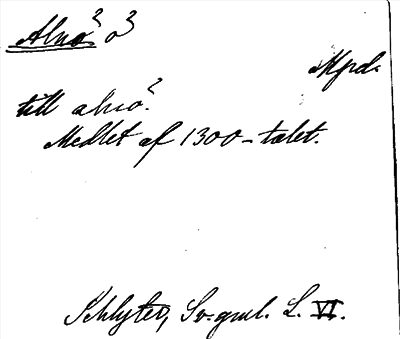 Alnö³ ö³
Mpd.
till alnö².
Medlet af 1300-talet.
Schlyter, Sv. gml. L. VI.